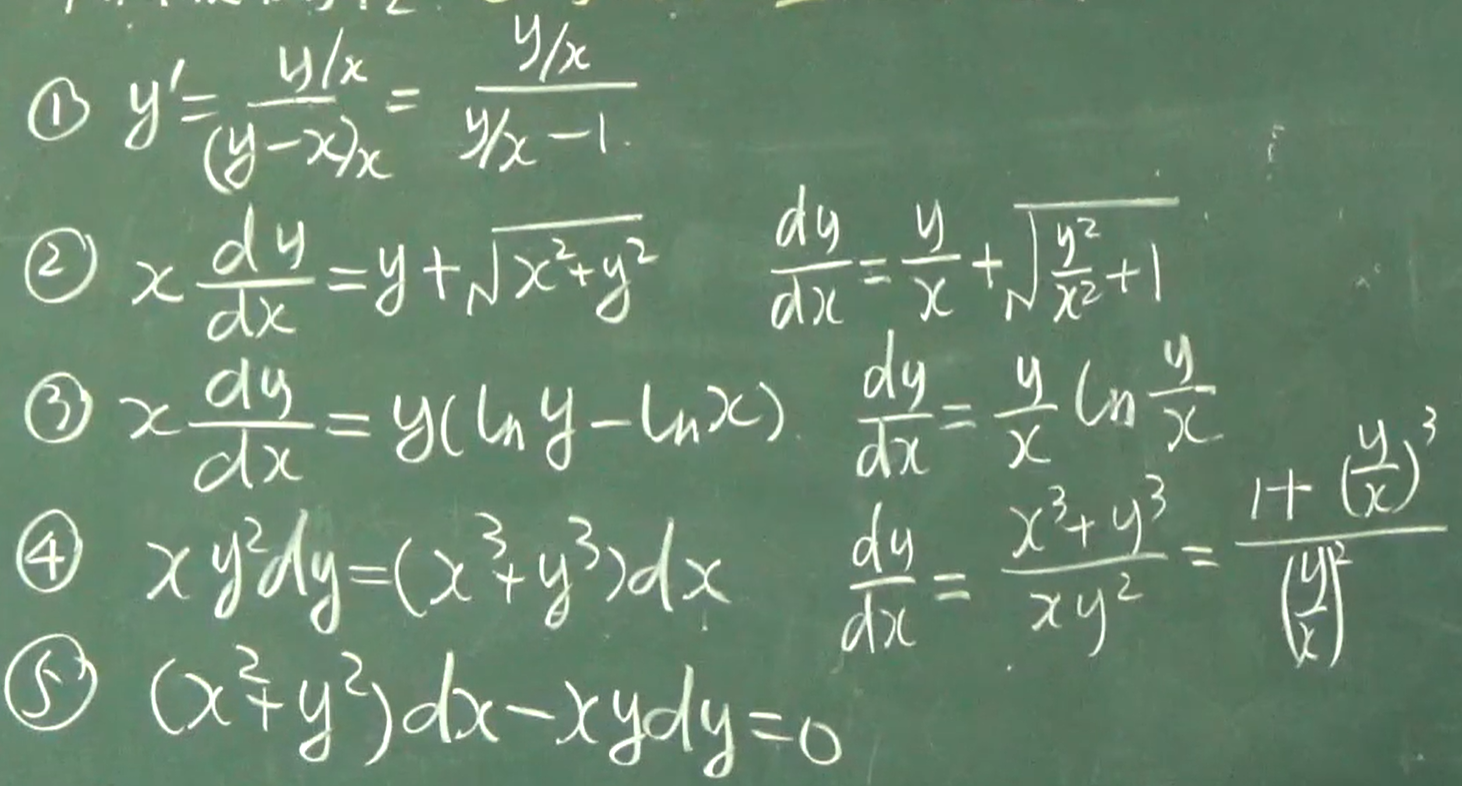 ① y' = \frac{y/x}{(y-x)/x} = \frac{y/x}{y/x-1}.
② x\frac{dy}{dx} = y+\sqrt{x^2+y^2} \frac{dy}{dx} = \frac{y}{x}+\sqrt{\frac{y^2}{x^2}+1}
③ x\frac{dy}{dx} = y(\ln y-\ln x). \frac{dy}{dx} = \frac{y}{x}\ln\frac{y}{x}
④ xy^2dy=(x^3+y^3)dx \frac{dy}{dx} = \frac{x^3+y^3}{xy^2} = \frac{1+(\frac{y}{x})^3}{(\frac{y}{x})^2}
⑤ (x^2+y^2)dx-xydy=0